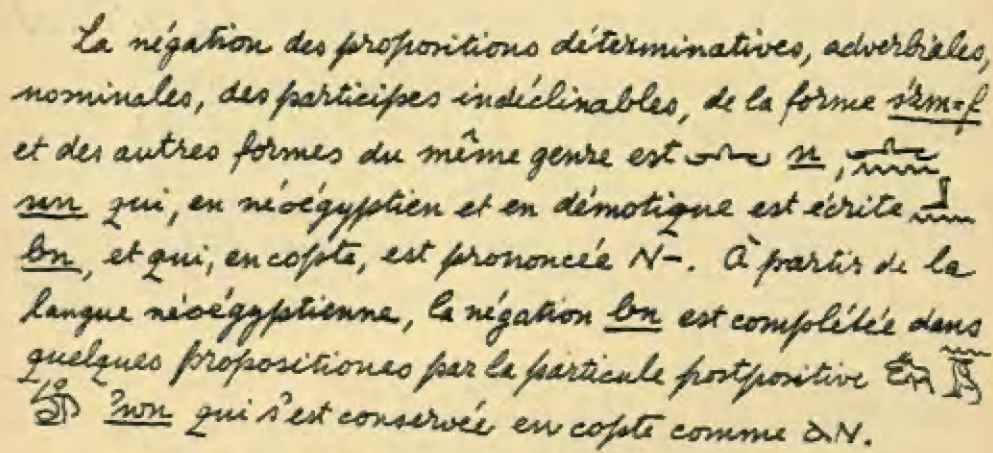 La négation des propositions déterminatives, adverbiales,
nominales, des participes indéclinables, de la forme śḏm=f
et des autres formes du même genre est 𓂜 n, 𓂜𓈖
nn qui, en néoégyptien et en démotique est écrite 𓃀𓈖
bn, et qui, en copte, est prononcée N-. À partir de la
langue néoégyptienne, la négation bn est complétée dans
quelques propositiones par la particule postpositive
ꜣwn qui s'est conservée en copte comme ⲁN.